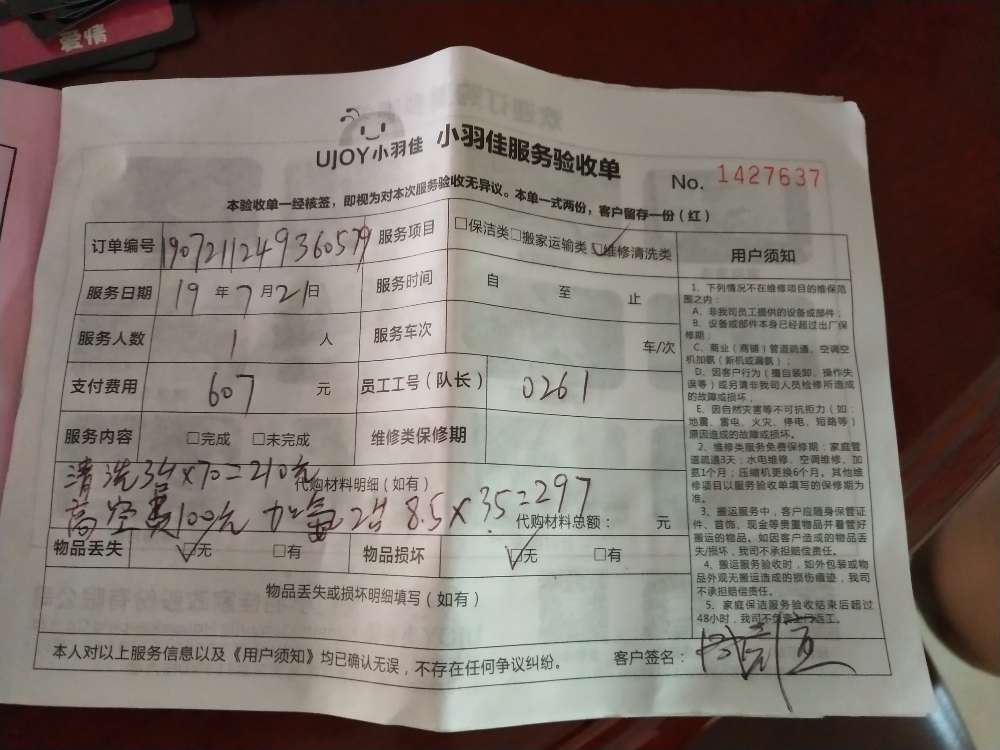 爱情
UJOY小羽佳 小羽佳服务验收单
No. 1427637
本验收单一经核签，即视为对本次服务验收无异议。本单一式两份，客户留存一份（红）
订单编号 190721124936057 服务项目 □保洁类□搬家运输类☑维修清洗类
服务日期 19 年 7 月 21 日 服务时间 自 至 止
服务人数 1 人 服务车次 车/次
支付费用 607 元 员工工号（队长） 0261
服务内容 □完成 □未完成 维修类保修期
清洗3台×70=210元
代购材料明细（如有）
高空费100元 加氟2台 8.5×35=297
代购材料总额： 元
物品丢失 ☑无 □有 物品损坏 ☑无 □有
物品丢失或损坏明细填写（如有）
本人对以上服务信息以及《用户须知》均已确认无误，不存在任何争议纠纷。 客户签名：
用户须知
1、下列情况不在维修项目的维保范
围之内：
A、非我司员工提供的设备或部件；
B、设备或部件本身已经超过出厂保
修期；
C、商业（商铺）管道疏通、空调空
机加氟（新机或漏氟）；
D、因客户行为（擅自装卸、操作失
误等）或另请非我司人员检修所造成
的故障或损坏；
E、因自然灾害等不可抗拒力（如：
地震、雷电、火灾、停电、短路等）
原因造成的故障或损坏。
2、维修类服务免费保修期：家庭管
道疏通3天；水电维修、空调维修、加
氟1个月；压缩机更换6个月。其他维
修项目以服务验收单填写的保修期为
准。
3、搬运服务中，客户应随身保管证
件、首饰、现金等贵重物品并看管好
搬运的物品。如因客户造成的物品丢
失/损坏，我司不承担赔偿责任。
4、搬运服务验收时，如外包装或物
品外观无搬运造成的损伤痕迹，我司
不承担赔偿责任。
5、家庭保洁服务验收结束后超过
48小时，我司不负责上门返工。